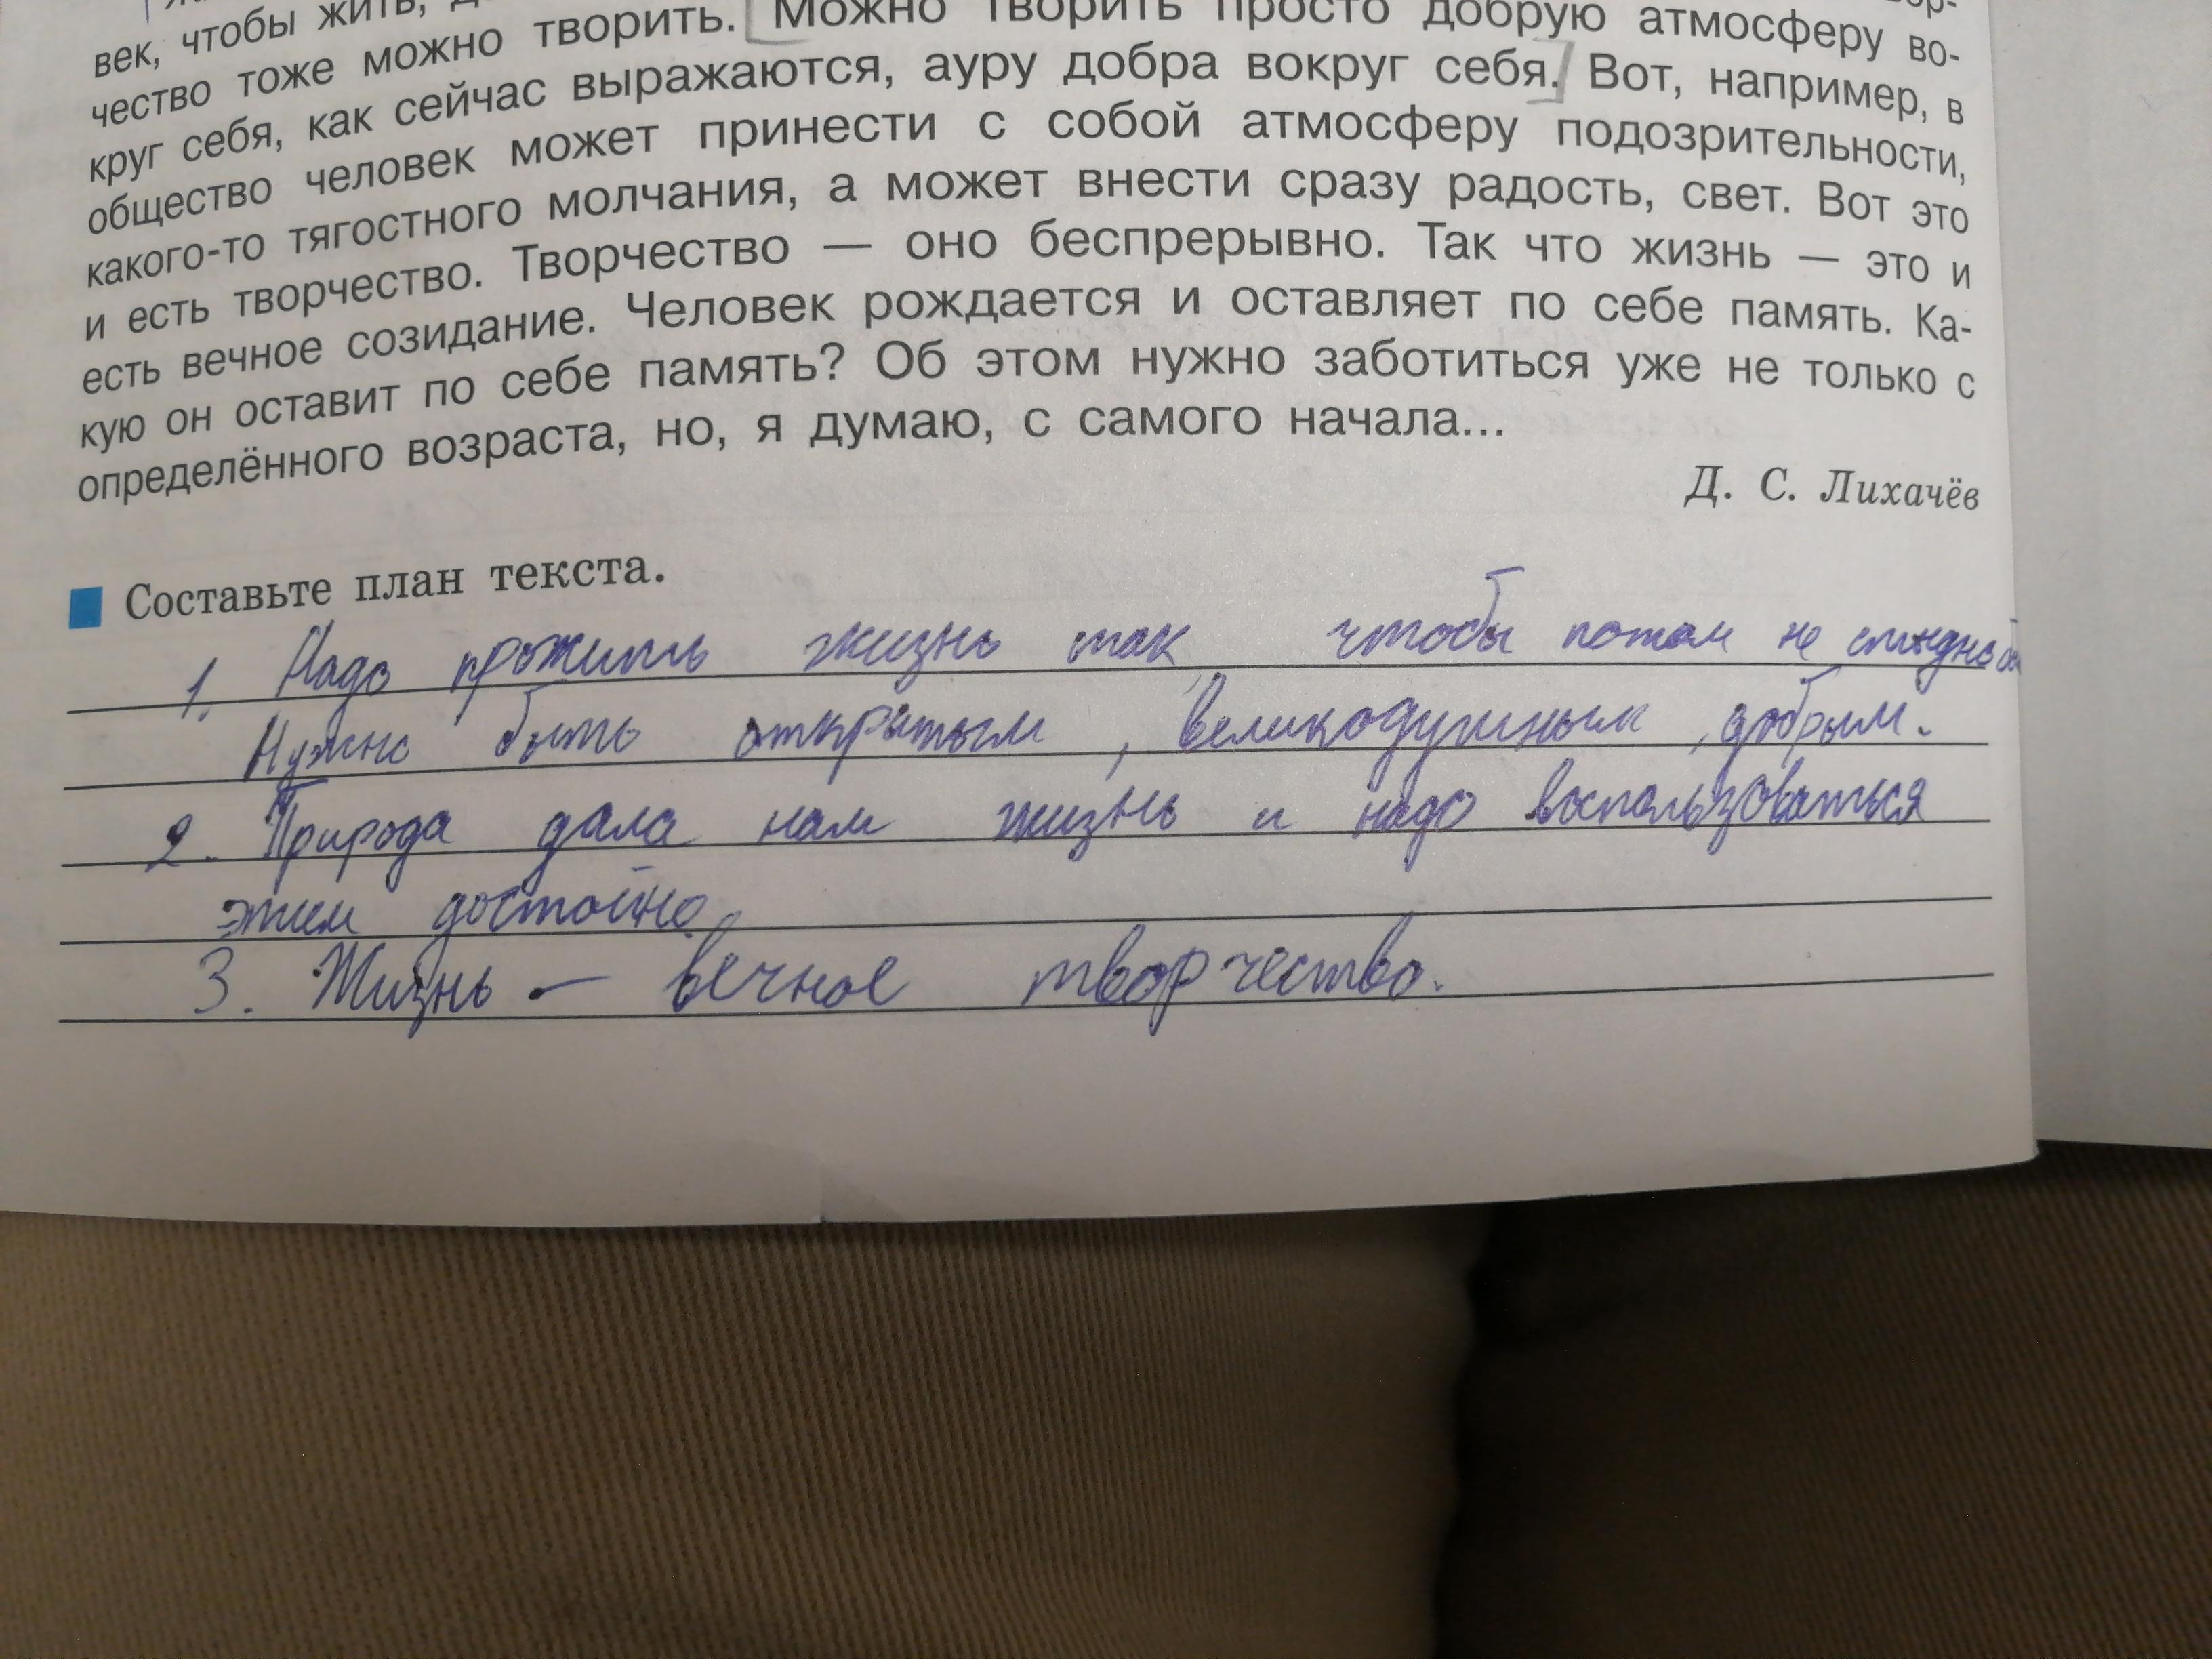 век, чтобы жить,
чество тоже можно творить. Можно творить просто добрую атмосферу во-
круг себя, как сейчас выражаются, ауру добра вокруг себя. Вот, например, в
общество человек может принести с собой атмосферу подозрительности,
какого-то тягостного молчания, а может внести сразу радость, свет. Вот это
и есть творчество. Творчество — оно беспрерывно. Так что жизнь — это и
есть вечное созидание. Человек рождается и оставляет по себе память. Ка-
кую он оставит по себе память? Об этом нужно заботиться уже не только с
определённого возраста, но, я думаю, с самого начала...
Д. С. Лихачёв
Составьте план текста.
1. Надо прожить жизнь так, чтобы потом не
Нужно быть открытым, великодушным, добрым.
2. Природа дала нам жизнь и надо воспользоваться
этим достойно.
3. Жизнь — вечное творчество.